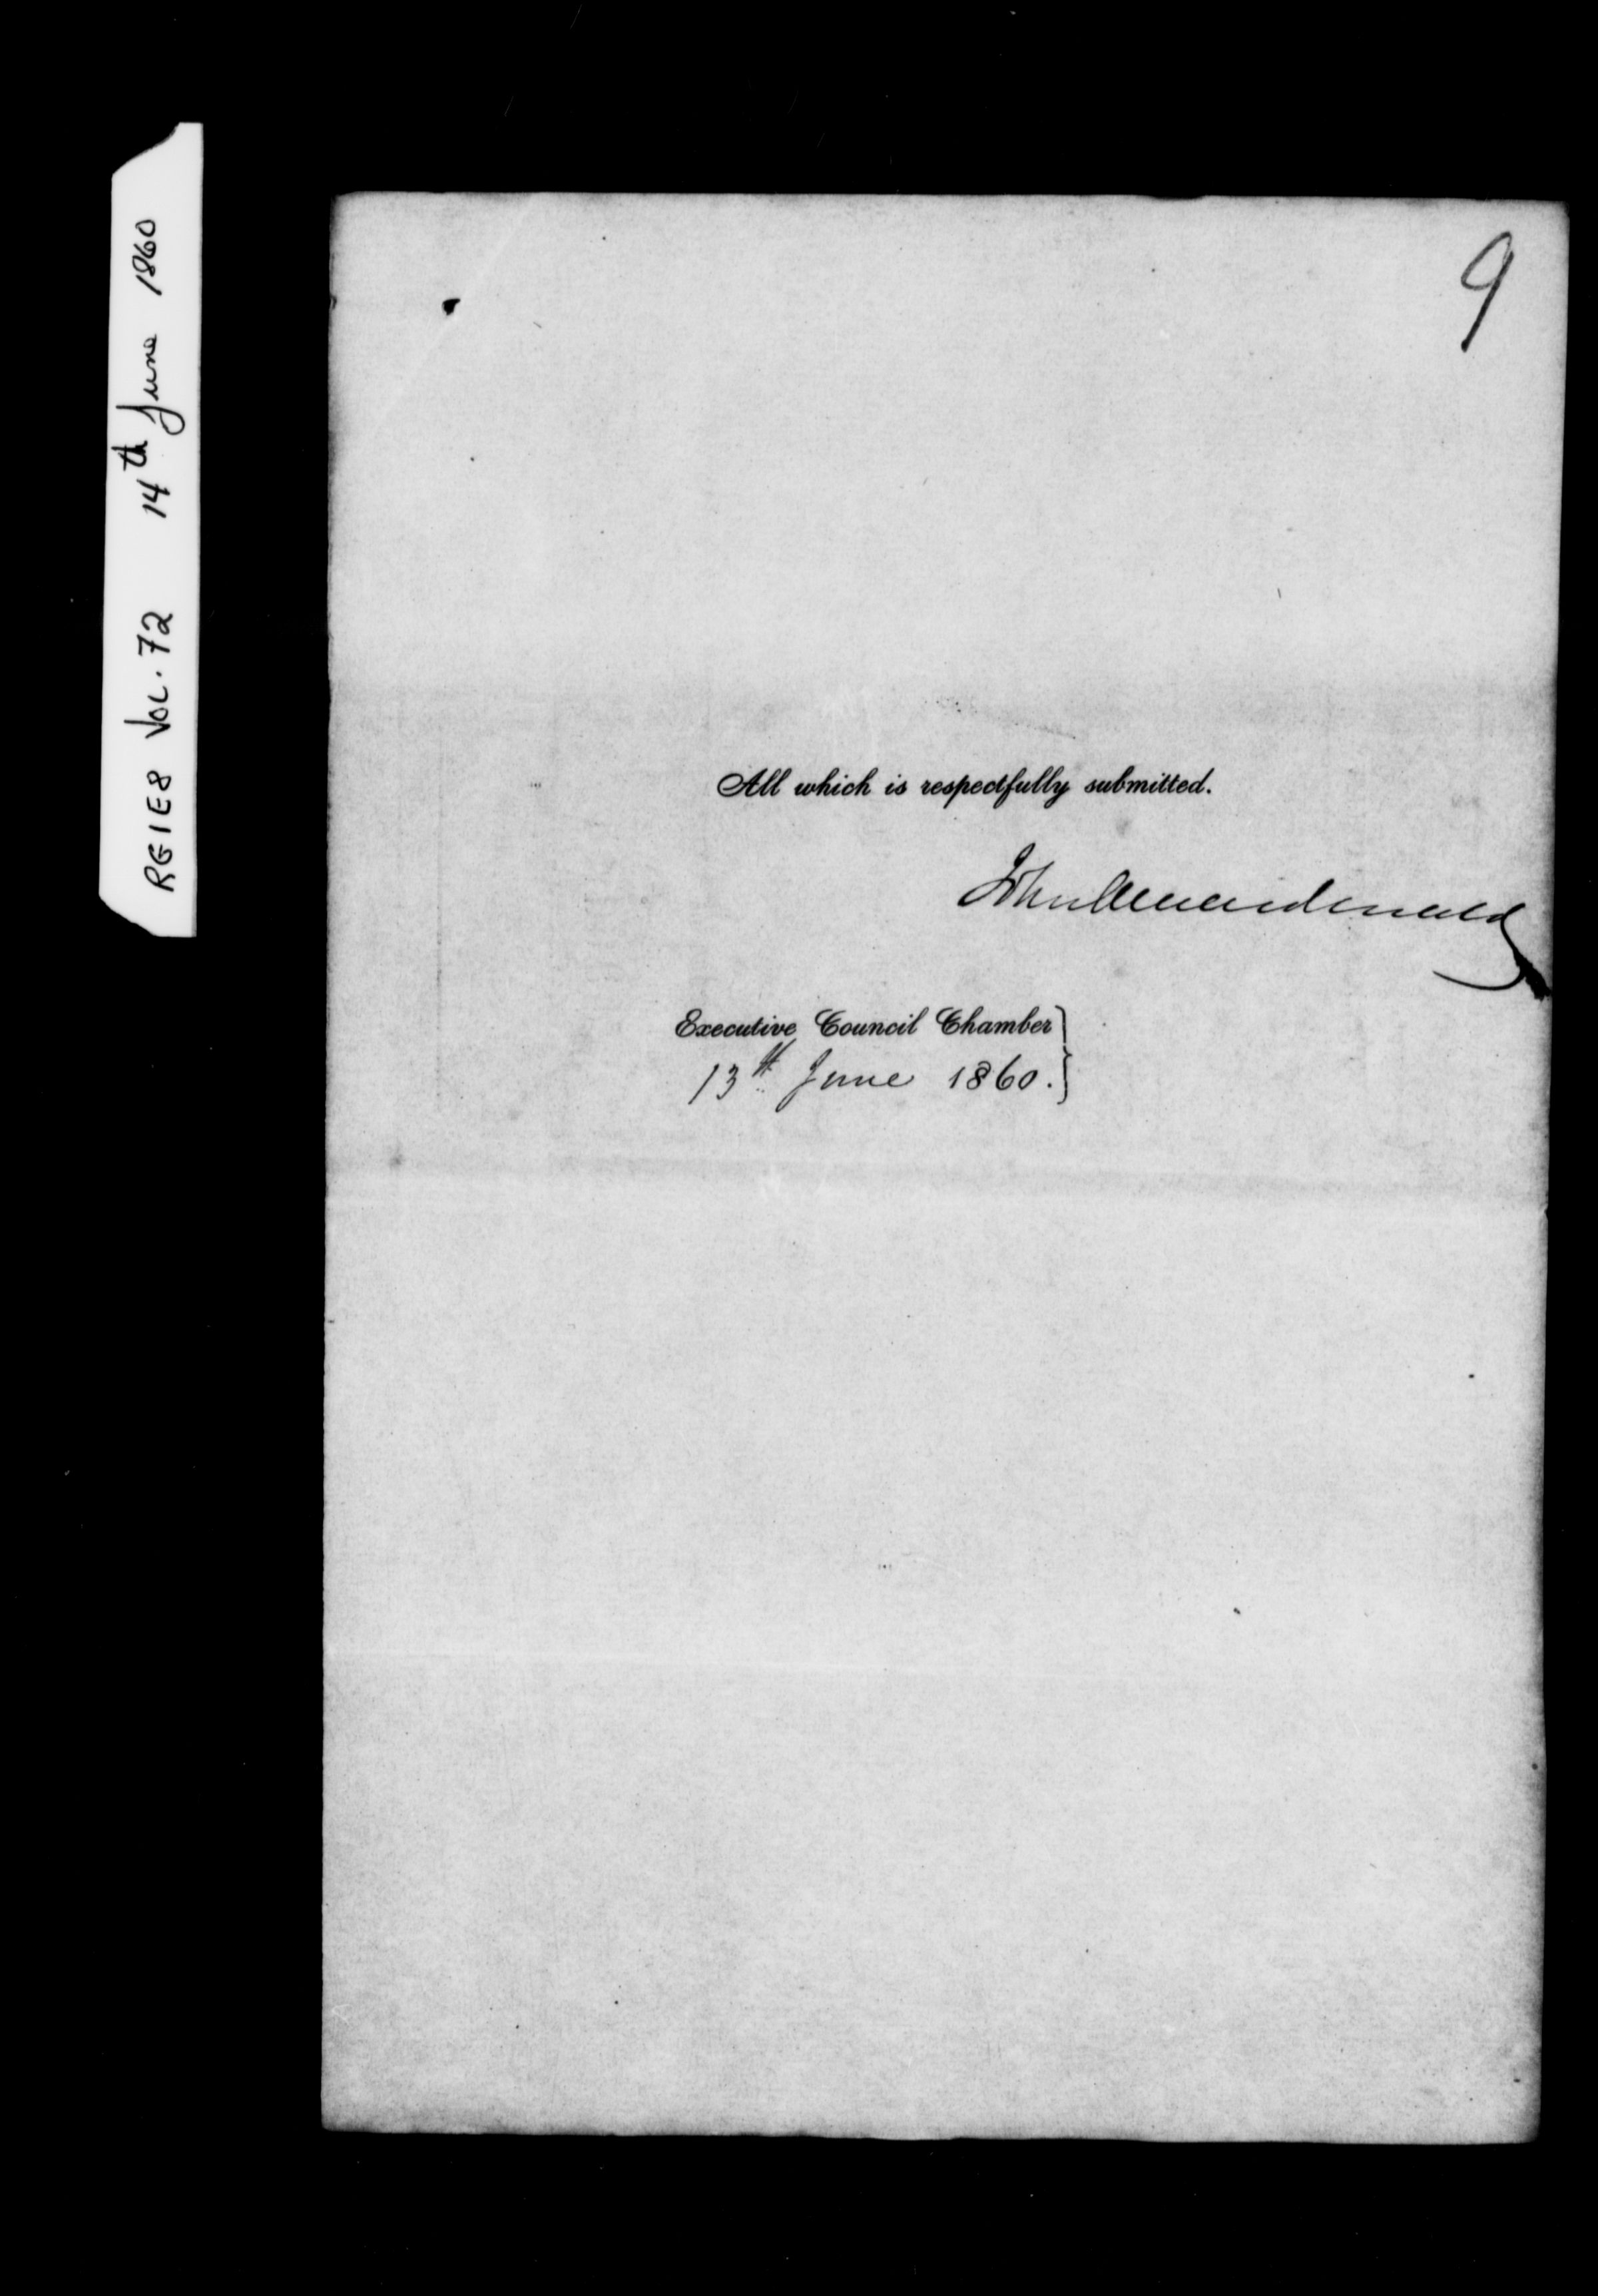 RG1E8 VOL. 72 14th June 1860
9
All which is respectfully submitted.
John A Macdonald
Executive Council Chamber
13th June 1860.